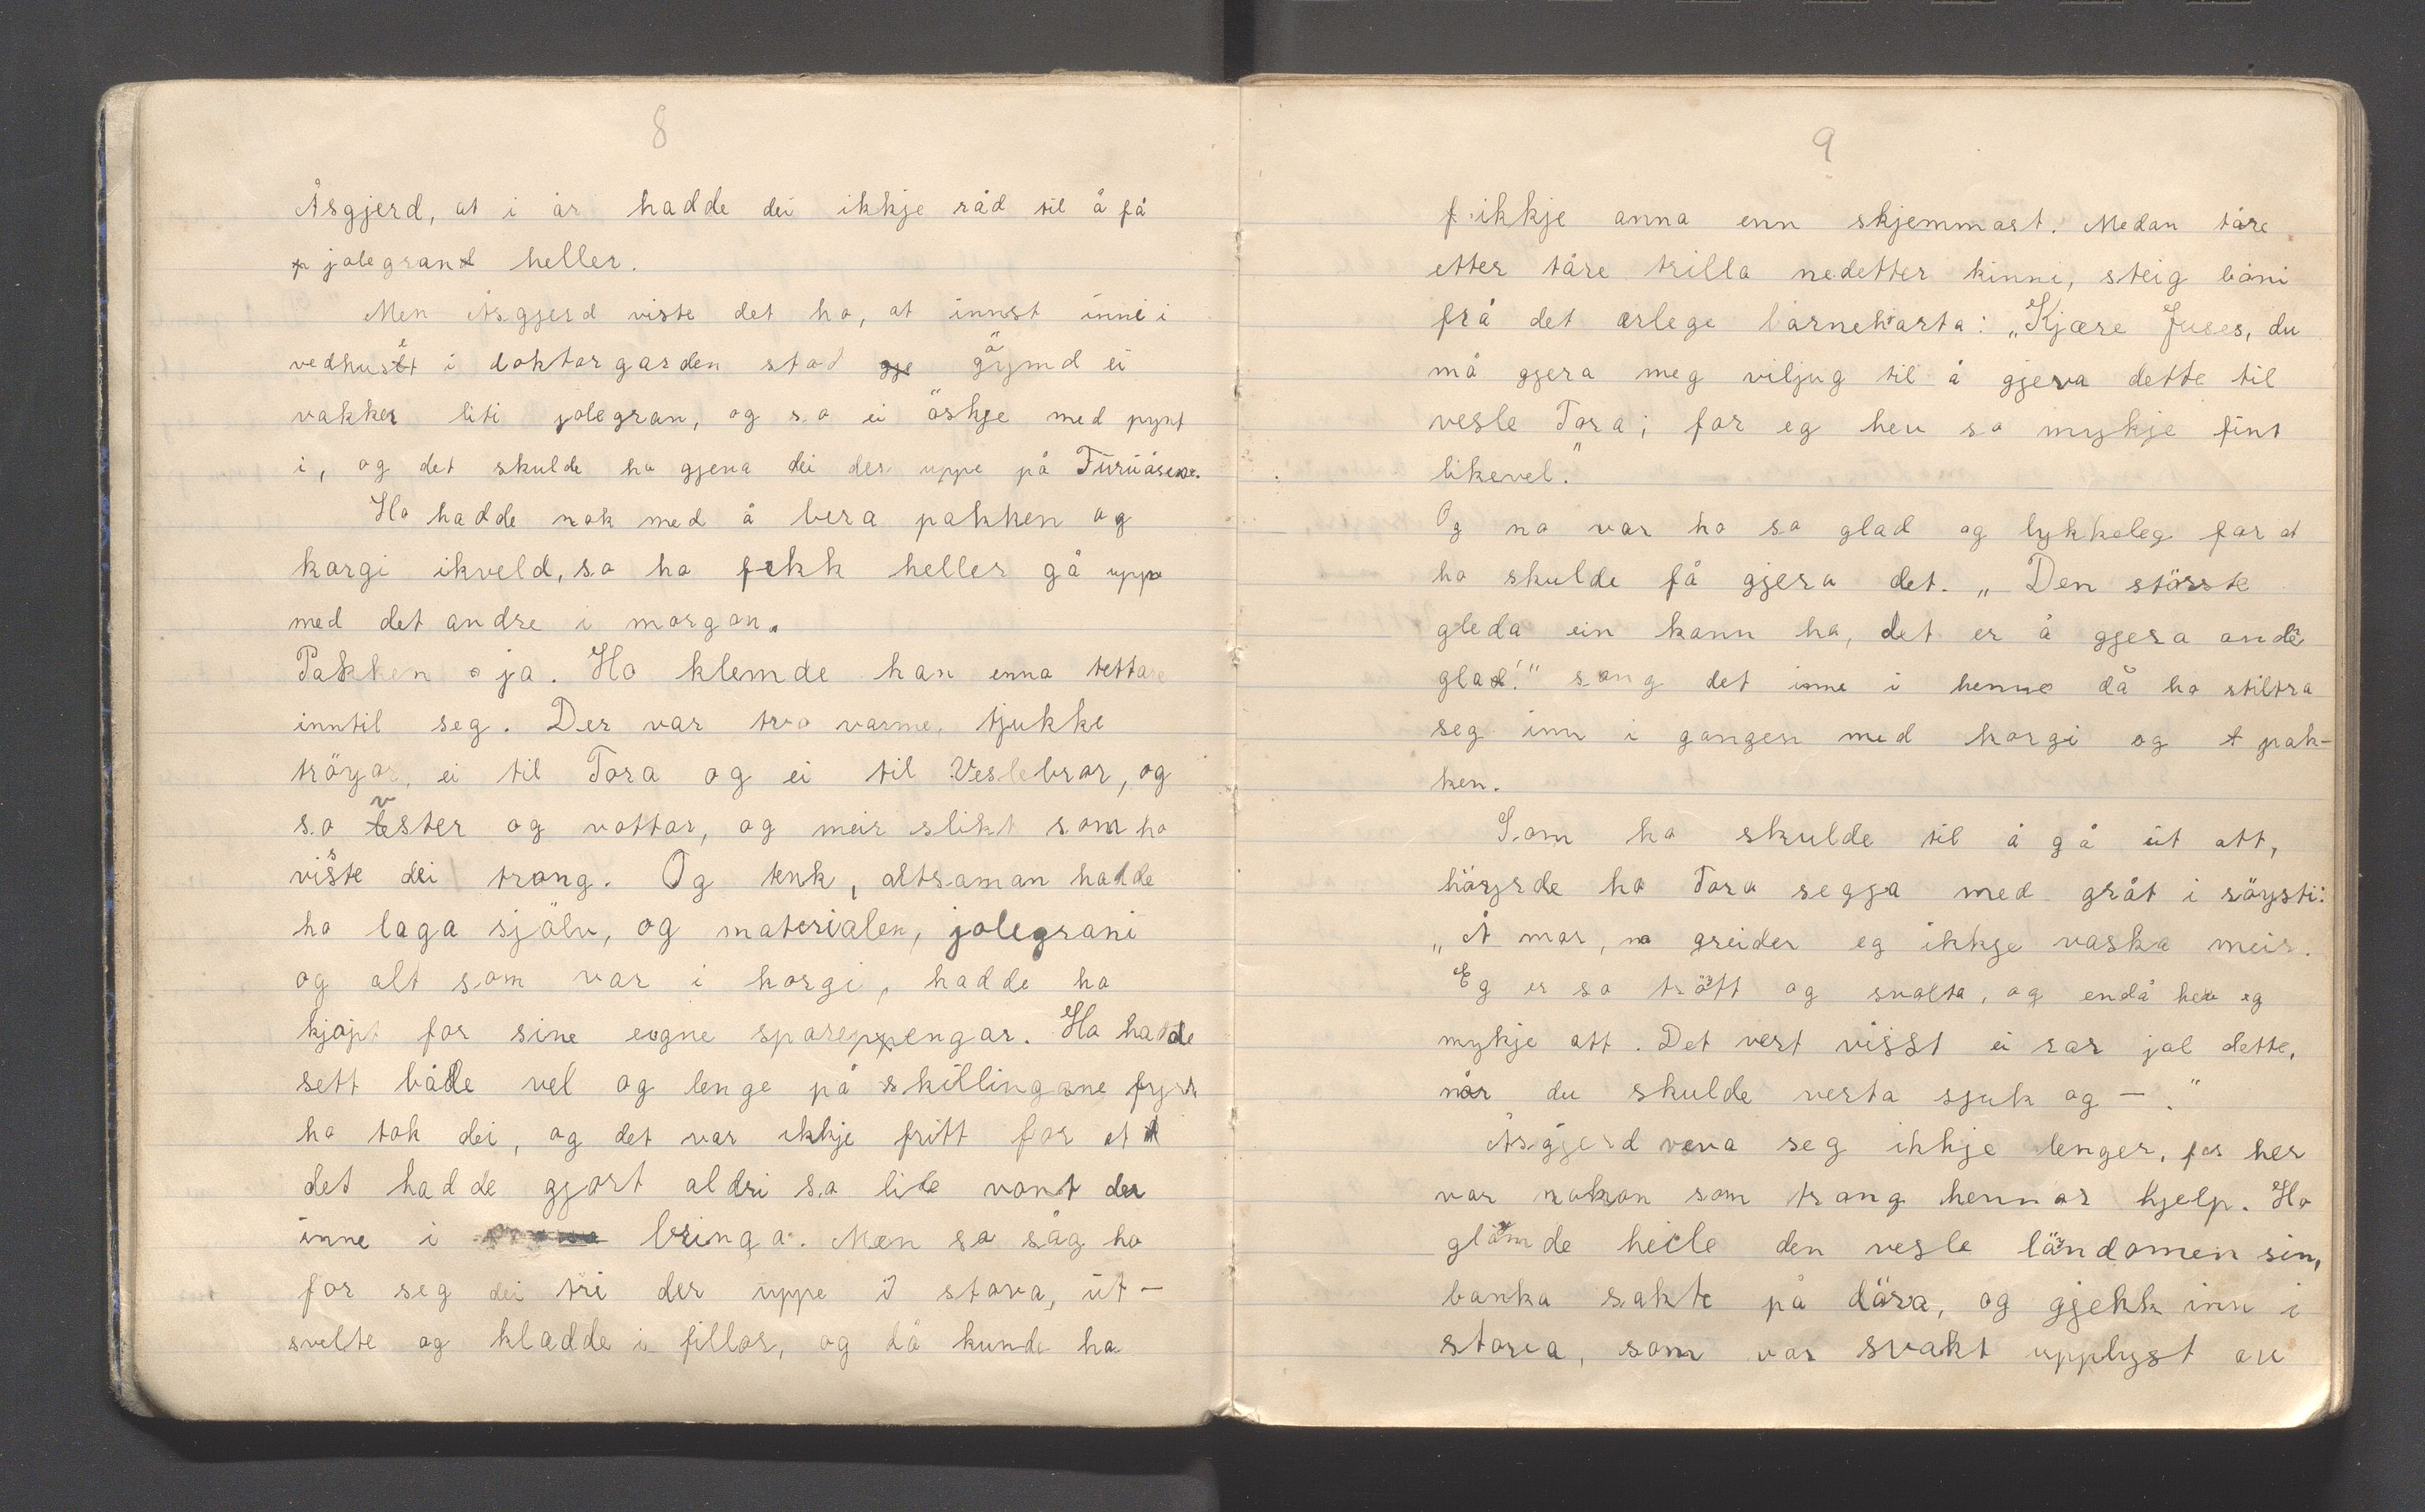 8
Åsgjerd, at i år hadde dei ikkje råd til å få
jolegran heller.
Men Åsgjerd viste det ho, at innst inne i
vedhuset i doktorgarden stod göymd ei
vakker liti jolegran, og so ei öskje med pynt
i, og det skulde ho gjeva dei der uppe på Furuåsen.
Ho hadde nok med å bera pakken og
korgi ikveld, so ho fekk heller gå upp
med det andre i morgon.
Pakken ja. Ho klemde han enno tettare
inntil seg. Der var tvo varme, tjukke
tröyor, ei til Tora og ei til Veslebror, og
so vester og vottar, og meir slikt som ho
visste dei trong. Og tenk, altsaman hadde
ho laga sjölv, og materialen, jolegrani
og alt som var i korgi, hadde ho
kjöpt for sine eigne sparepengar. Ho hadde
sett både vel og lenge på skillingane fyrr
ho tok dei, og det var ikkje fritt for at
det hadde gjort aldri so lite vont der
inne i bringa. Men so såg ho
for seg dei tri der uppe i stova, ut-
svelte og kledde i fillor, og då kunde ho
9
ikkje anna enn skjemmast. Medan tåre
etter tåre trilla nedetter kinni, steig böni
frå det ærlege barnehjarta: „Kjære Juses, du
må gjera meg viljug til å gjeva dette til
vesle Tora; for eg hev so mykje fint
likevel."
Og no var ho so glad og lykkeleg for at
ho skulde få gjera det. „Den störste
gleda ein kann ha, det er å gjera andre
glad!" song det inne i henne då ho stiltra
seg inn i gangen med korgi og pak-
ken.
Som ho skulde til å gå ut att,
höyrde ho Tora segja med gråt i röysti:
„Å mor, no greider eg ikkje vaska meir.
Eg er so tröytt og svolta, og endå hev eg
mykje att. Det vert visst ei rar jol dette,
når du skulde verta sjuk og —."
Åsgjerd vova seg ikkje lenger, for her
var nokon som trong hennar hjelp. Ho
glöymde heile den vesle löyndomen sin,
banka sakte på döra, og gjekk inn i
stova, som var svakt upplyst av